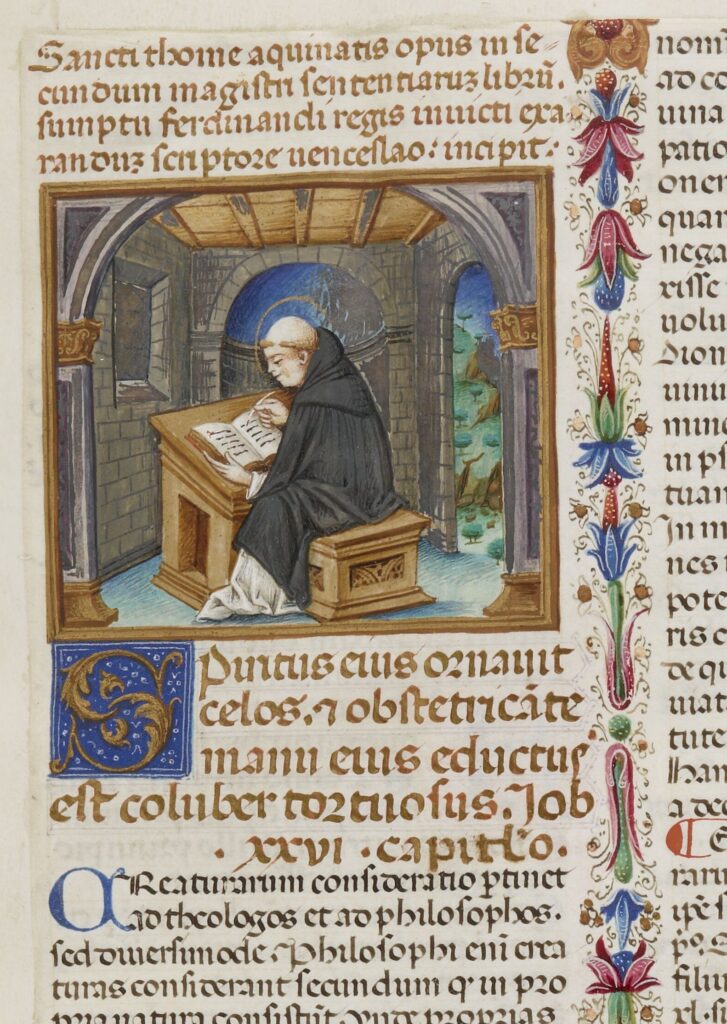 Sancti thome aquinatis opus in se-
cundum magistri sententiaruz libru.
sumptu ferdinandi regis inuicti exa-
randuz scriptore uenceslao: incipit:
Spiritus eius ornauit
celos. & obstetricate
manu eius eductus
est coluber tortuosus. Iob
.xxvi. capitlo.
Creaturarum consideratio ptinet
ad theologos et ad philosophos.
sed diuersimode. Philosophi eni crea
turas considerant secundum q in pro
pria natura consistut. Vnde proprias
nom
ad ce
uina
patio
oner
quan
nega
xisse
uolu
Dion
uinu
mino
in ps
tuan
In m
nes
pote
ris c
de qu
uiat
tute
ham
a dec
E
raru
ipe s
po.
filiu
xl. si